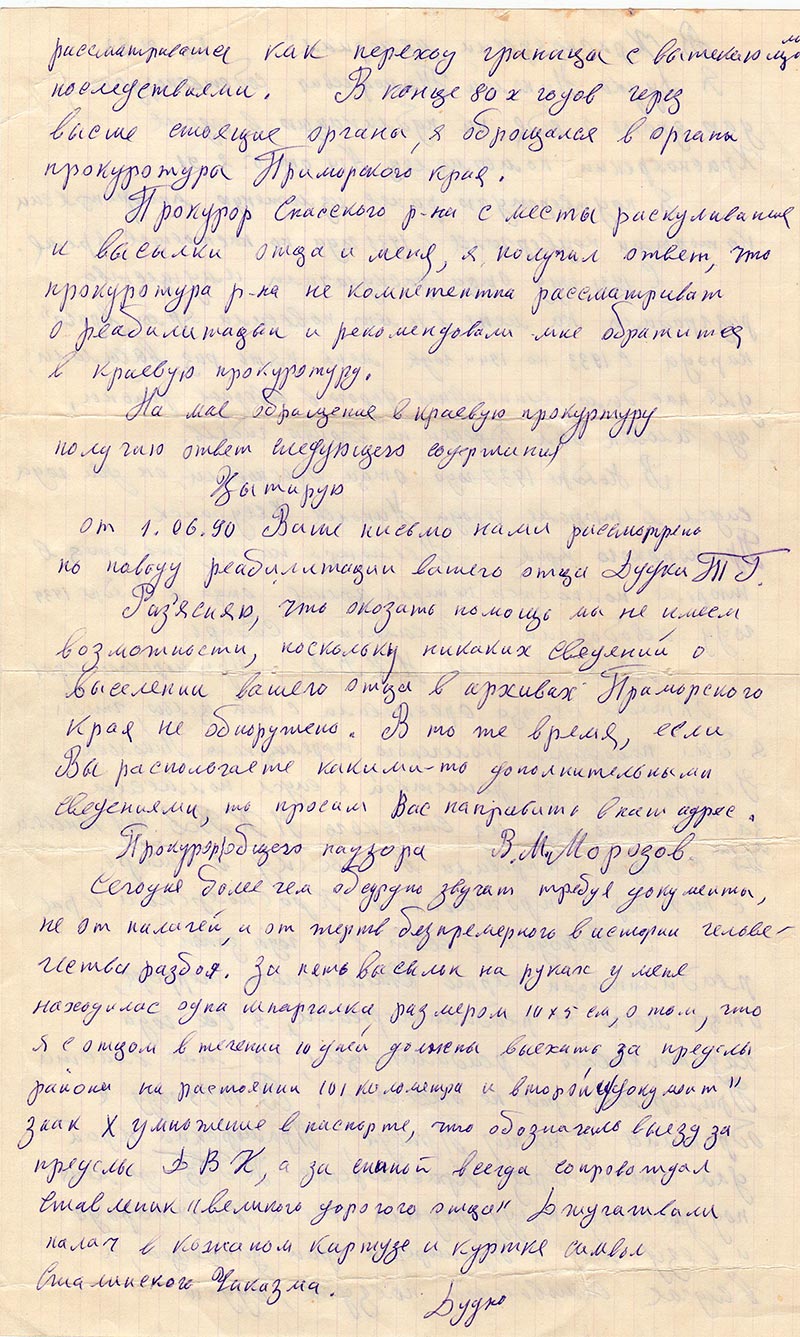 рассматриватса как переход границы с вытекаюшими
последствиями. В конце 80х годов через
высше стоящие органы, я оброщался в органы
прокуротуры Приморского края.
Прокурор Спасского р-на с месты раскуливания
и высылки отца и меня, я получил ответ, что
прокуротура р-на не компетентна рассматриват
о реабилитацыи и рекомендовали мне обратится
в краевую прокуротуру.
На мое обращение в краевую прокуртуру
получаю ответ следующего содержания
Цытирую
от 1.06.90 Ваше письмо нами рассмотрено
по поводу реабилитации вашего отца Дудки Т Г.
Раз'ясняю, что оказать помощь мы не имеем
возможности, поскольку никаких сведений о
выселении вашего отца в архивах Приморского
края не обноружено. В то же время, если
Вы распологаете какими-то дополнительными
сведениями, то просим Вас направить в наш адрес.
Прокурор общего надзора В.М. Морозов.
Сегодня более чем обсурдно звучат требуя документы,
не от палачей, и от жертв безпремерного в истории челове-
чества разбоя. За пять высылок на руках у меня
находилас одна шпаргалка, размером 10x5 см, о том, что
я с отцом в течении 10 дней должны выехать за пределы
района на растоянии 101 километра и второй "документ"
знак X умножение в паспорте, что обозначаль выезд за
пределы Д В К, а за спиной всегда сопровождал
ставленик "великого дорогого отца" Джугашвили
палач в кожаном картузе и куртке симвл
Сталинского Чиказма.
Дудко